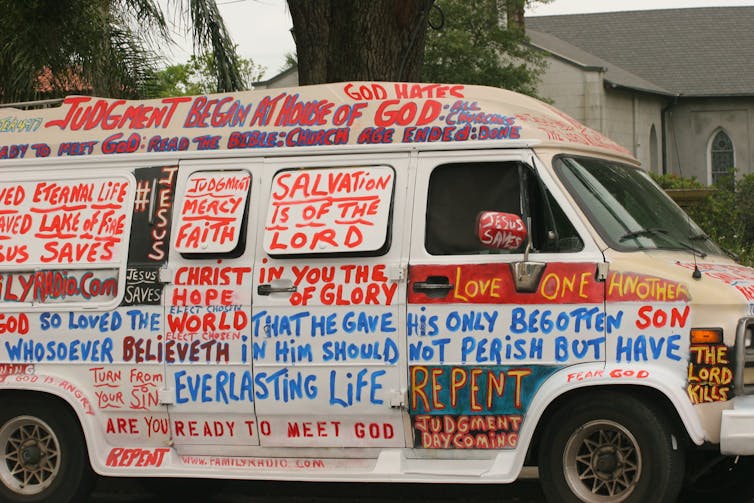 GOD HATES
JUDGMENT BEGAN AT HOUSE OF GOD: ALL CHURCHES
ADY TO MEET GOD: READ THE BIBLE: CHURCH AGE ENDED: DONE
VED ETERNAL LIFE
AVED LAKE OF FIRE
SUS SAVES
ILYRADIO.COM
#1
JESUS
JESUS
SAVES
JUDGMENT
MERCY
FAITH
SALVATION
IS OF THE
LORD
JESUS
SAVES
CHRIST IN YOU THE
HOPE OF GLORY
LOVE ONE ANOTHER
ELECT CHOSEN
ELECT CHOSEN
GOD SO LOVED THE WORLD THAT HE GAVE HIS ONLY BEGOTTEN SON
WHOSOEVER BELIEVETH IN HIM SHOULD NOT PERISH BUT HAVE
EVERLASTING LIFE
GOD IS ANGRY
TURN FROM
YOUR SIN
REPENT
JUDGMENT
DAY COMING
FEAR GOD
THE
LORD
KILLS
ARE YOU READY TO MEET GOD
REPENT
WWW.FAMILYRADIO.COM